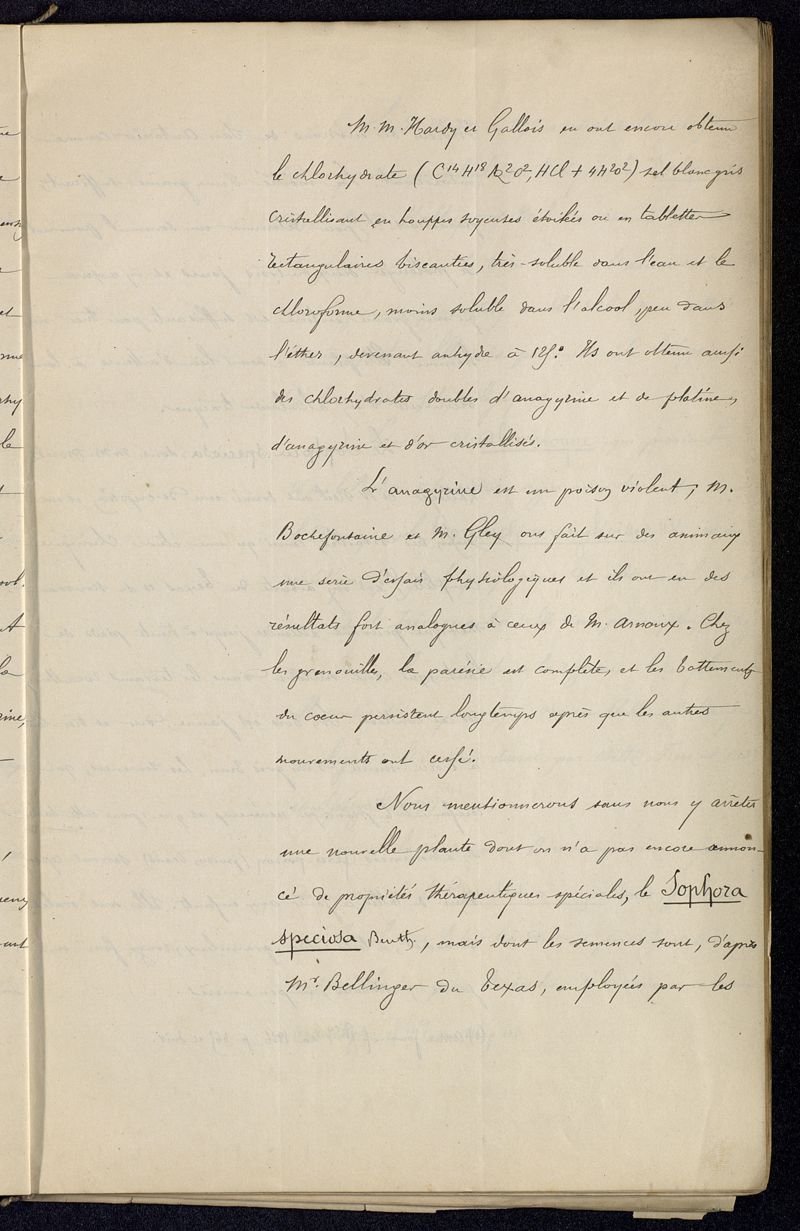 M. M. Hardy et Gallois en ont encore obtenu
le chlorhydrate (C¹⁴H¹⁸Az²O², HCl + 4H²O²) sel blanc gris
cristallisant en houppes soyeuses étoilées ou en tablettes
rectangulaires biseautées, très-soluble dans l'eau et le
chloroforme, moins soluble dans l'alcool, peu dans
l'éther, devenant anhydre à 125°. Ils ont obtenu aussi
des chlorhydrates doubles d'anagyrine et de platine,
d'anagyrine et d'or cristallisés.
L'anagyrine est un poison violent; M.
Bochefontaine et M. Gley ont fait sur des animaux
une serie d'essais physiologiques et ils ont eu des
résultats fort analogues à ceux de M. Arnoux. Chez
les grenouilles, la parésie est complète, et les battements
du coeur persistent longtemps après que les autres
mouvements ont cessé.
Nous mentionnerons sans nous y arrêter
une nouvelle plante dont on n'a pas encore annon-
cé de propriétés thérapeutiques spéciales, le Sophora
speciosa Benth., mais dont les semences sont, d'après
Mr. Bellinger du Texas, employées par les